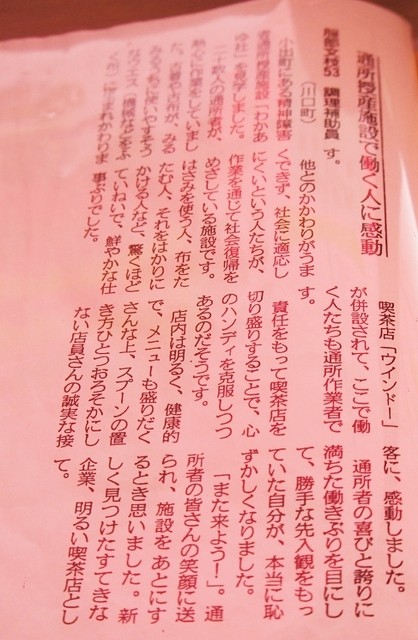 通所授産施設で働く人に感動
53 調理補助員
(川口町)
小出町にある精神障害
者通所授産施設「わかあ
ゆ社」を見学しました。
二十数人の通所者が、
熱心に作業をしていまし
た。古着や古布が、みる
みるうちに使いやすそう
なウエス(機械などをふ
く布)に生まれかわりま
す。
他とのかかわりがうま
くできず、社会に適応し
にくいという人たちが、
作業を通じて社会復帰を
めざしている施設です。
はさみを使う人、布をた
たむ人、それをはかりに
かける人など、驚くほど
ていねいで、鮮やかな仕
事ぶりでした。
喫茶店「ウインドー」
が併設されて、ここで働
く人たちも通所作業者で
す。
責任をもって喫茶店を
切り盛りすることで、心
のハンディを克服しつつ
あるのだそうです。
店内は明るく、健康的
で、メニューも盛りだく
さんな上、スプーンの置
き方ひとつおろそかにし
ない店員さんの誠実な接
客に、感動しました。
通所者の喜びと誇りに
満ちた働きぶりを目にし
て、勝手な先入観をもっ
ていた自分が、本当に恥
ずかしくなりました。
「また来よう!」。通
所者の皆さんの笑顔に送
られ、施設をあとにす
るとき思いました。新
しく見つけたすてきな
企業、明るい喫茶店とし
て。